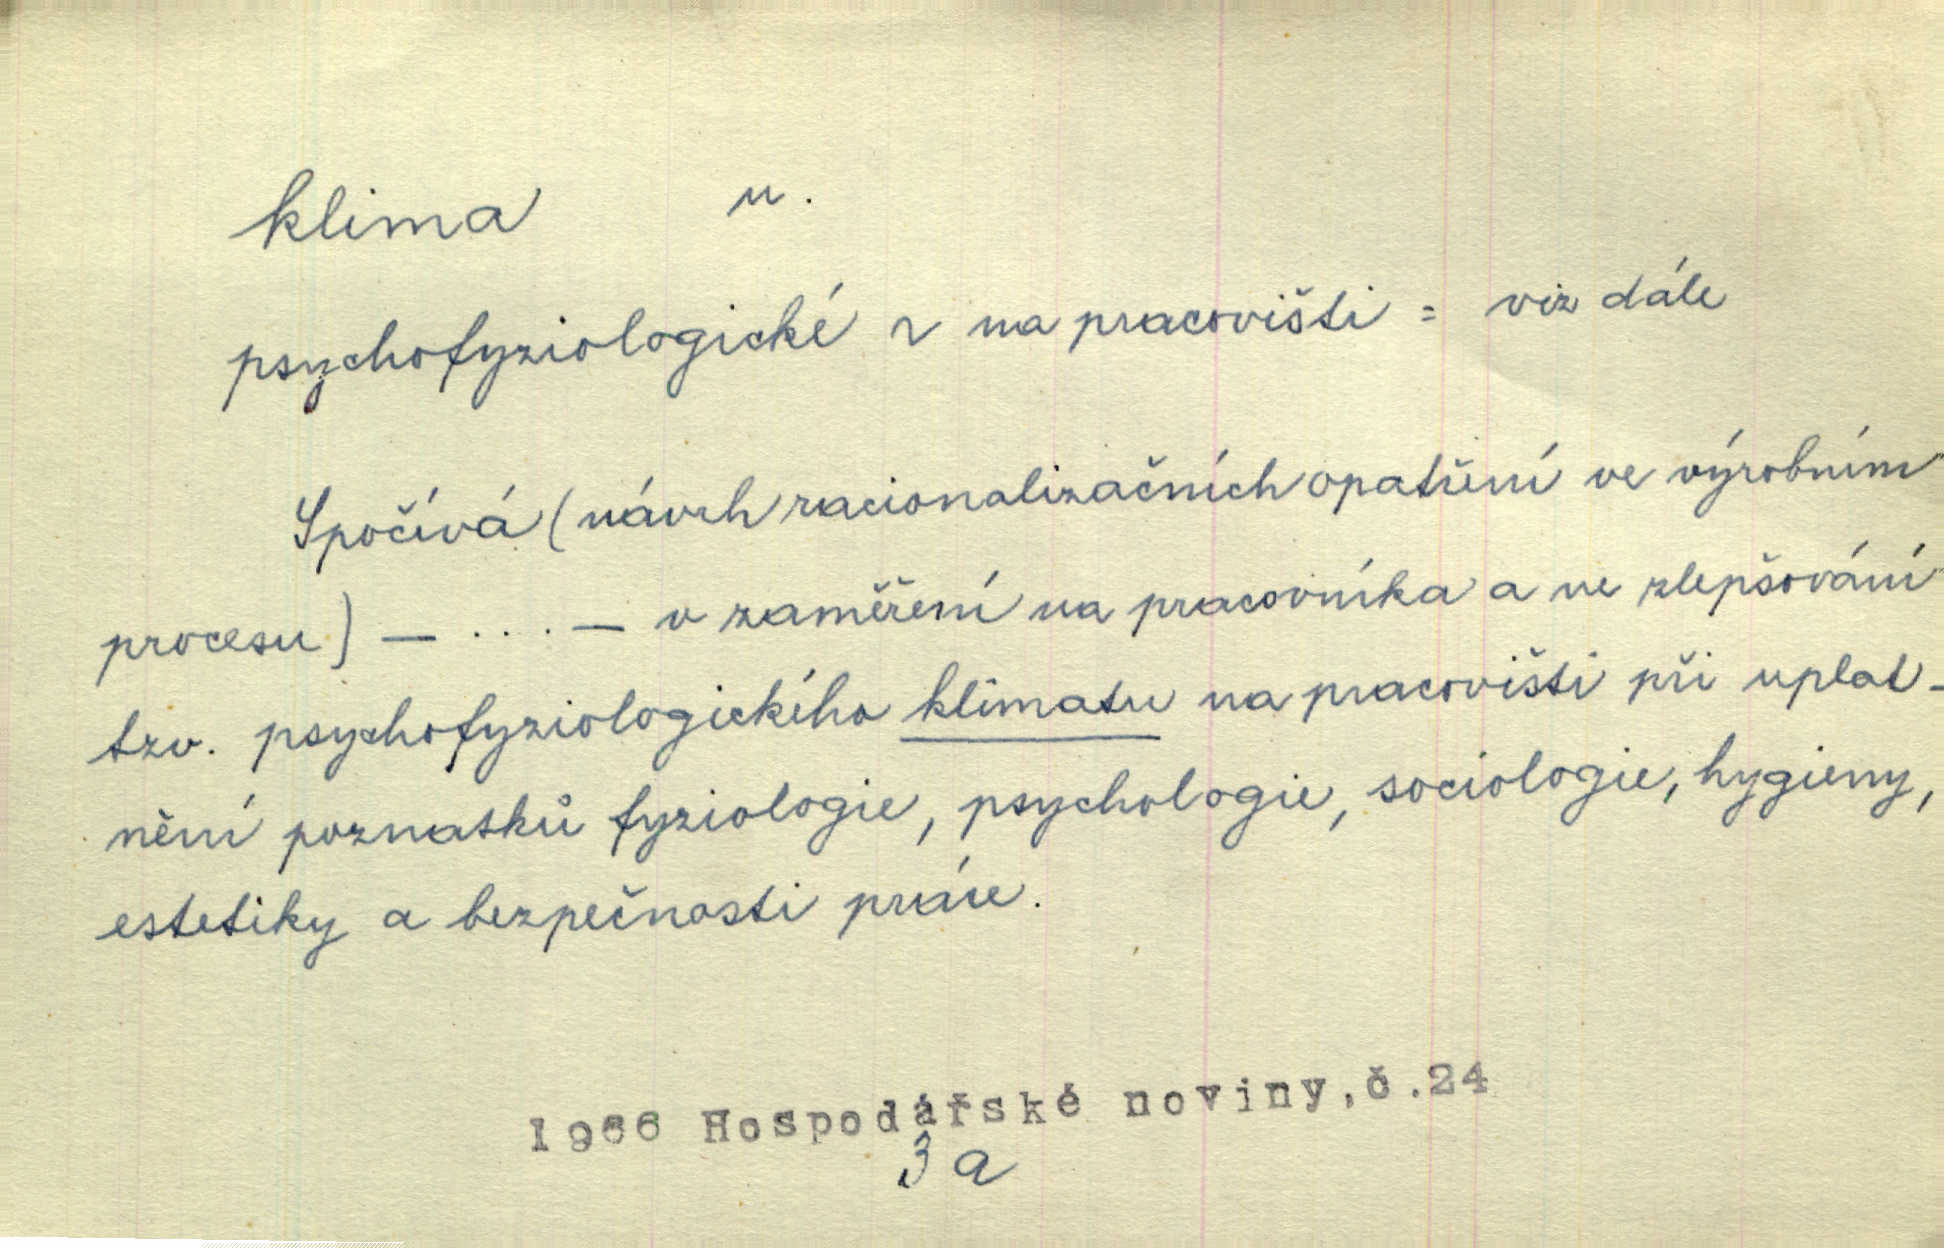 klima n.
psychofyziologické ~ na pracovišti = viz dále
Spočívá (návrh racionalizačních opatření ve výrobním
procesu) — .... — v zaměření na pracovníka a ve zlepšování
tzv. psychofyziologického klimatu na pracovišti při uplat-
nění poznatků fyziologie, psychologie, sociologie, hygieny,
estetiky a bezpečnosti práce.
1966 Hospodářské noviny, č.24
3a